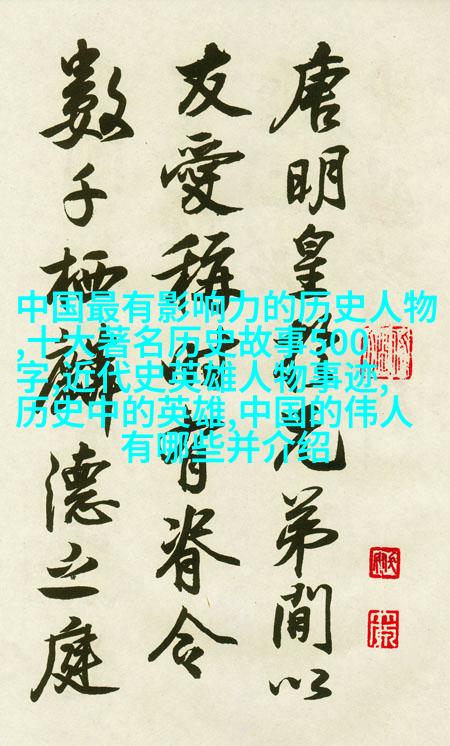 唐明皇於兄弟間以
友愛稱時有脊令
數千栖麟德之庭
中国最有影响力的历史人物
,十大著名历史故事500
字,近代史英雄人物事迹,
历史中的英雄,中国的伟人
有哪些并介绍